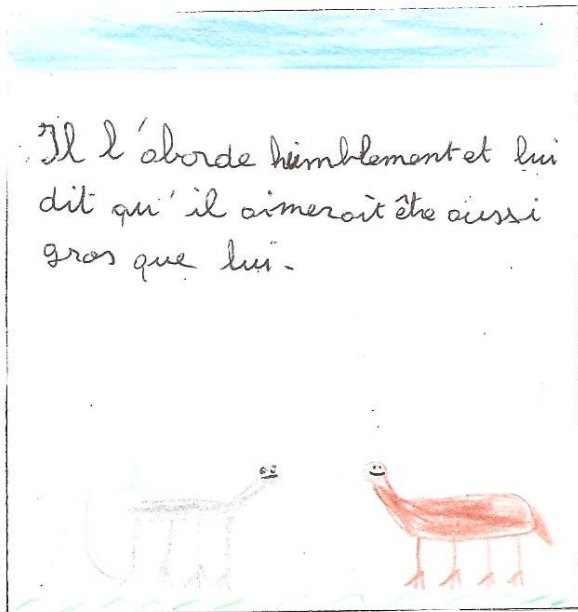 Il l'aborde humblement et lui
dit qu'il aimerait être aussi
gros que lui.